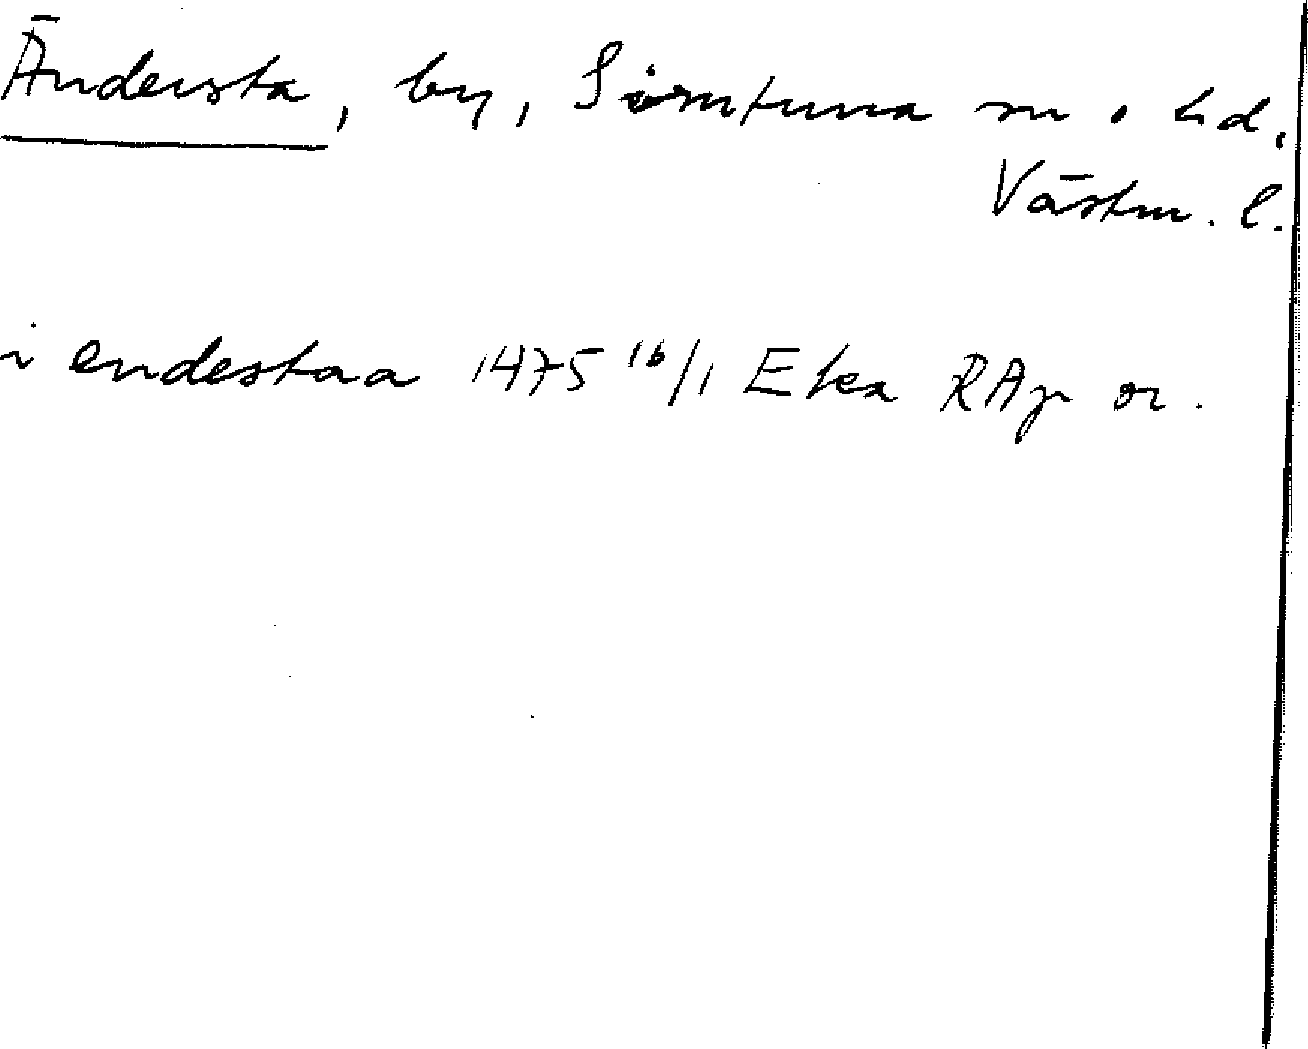 Ändersta, by, Simtuna sn o hd,
Västm. l.
i endestaa 1475 16/1 Eka RAp or.